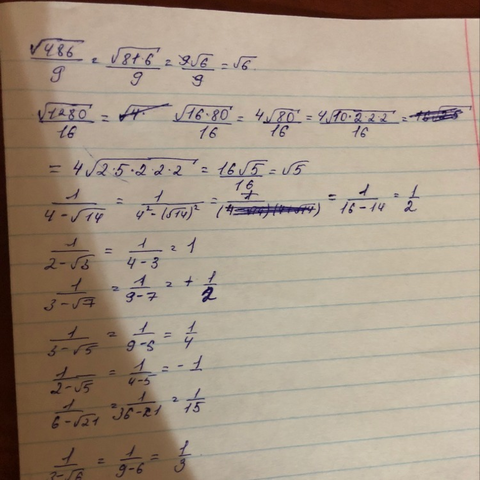 √486/9 = √81·6/9 = 9√6/9 = √6
√1280/16 = √16·80/16 = 4√80/16 = 4√10·2·2·2/16 =
= 4√2·5·2·2·2 = 16√5/16 = √5
1/4-√14 = 1/4²-(√14)² = 1/(4-√14)(4+√14) = 1/16-14 = 1/2
1/2-√3 = 1/4-3 = 1
1/3-√7 = 1/9-7 = + 1/2
1/3-√5 = 1/9-5 = 1/4
1/2-√5 = 1/4-5 = -1
1/6-√21 = 1/36-21 = 1/15
1/3-√6 = 1/9-6 = 1/3